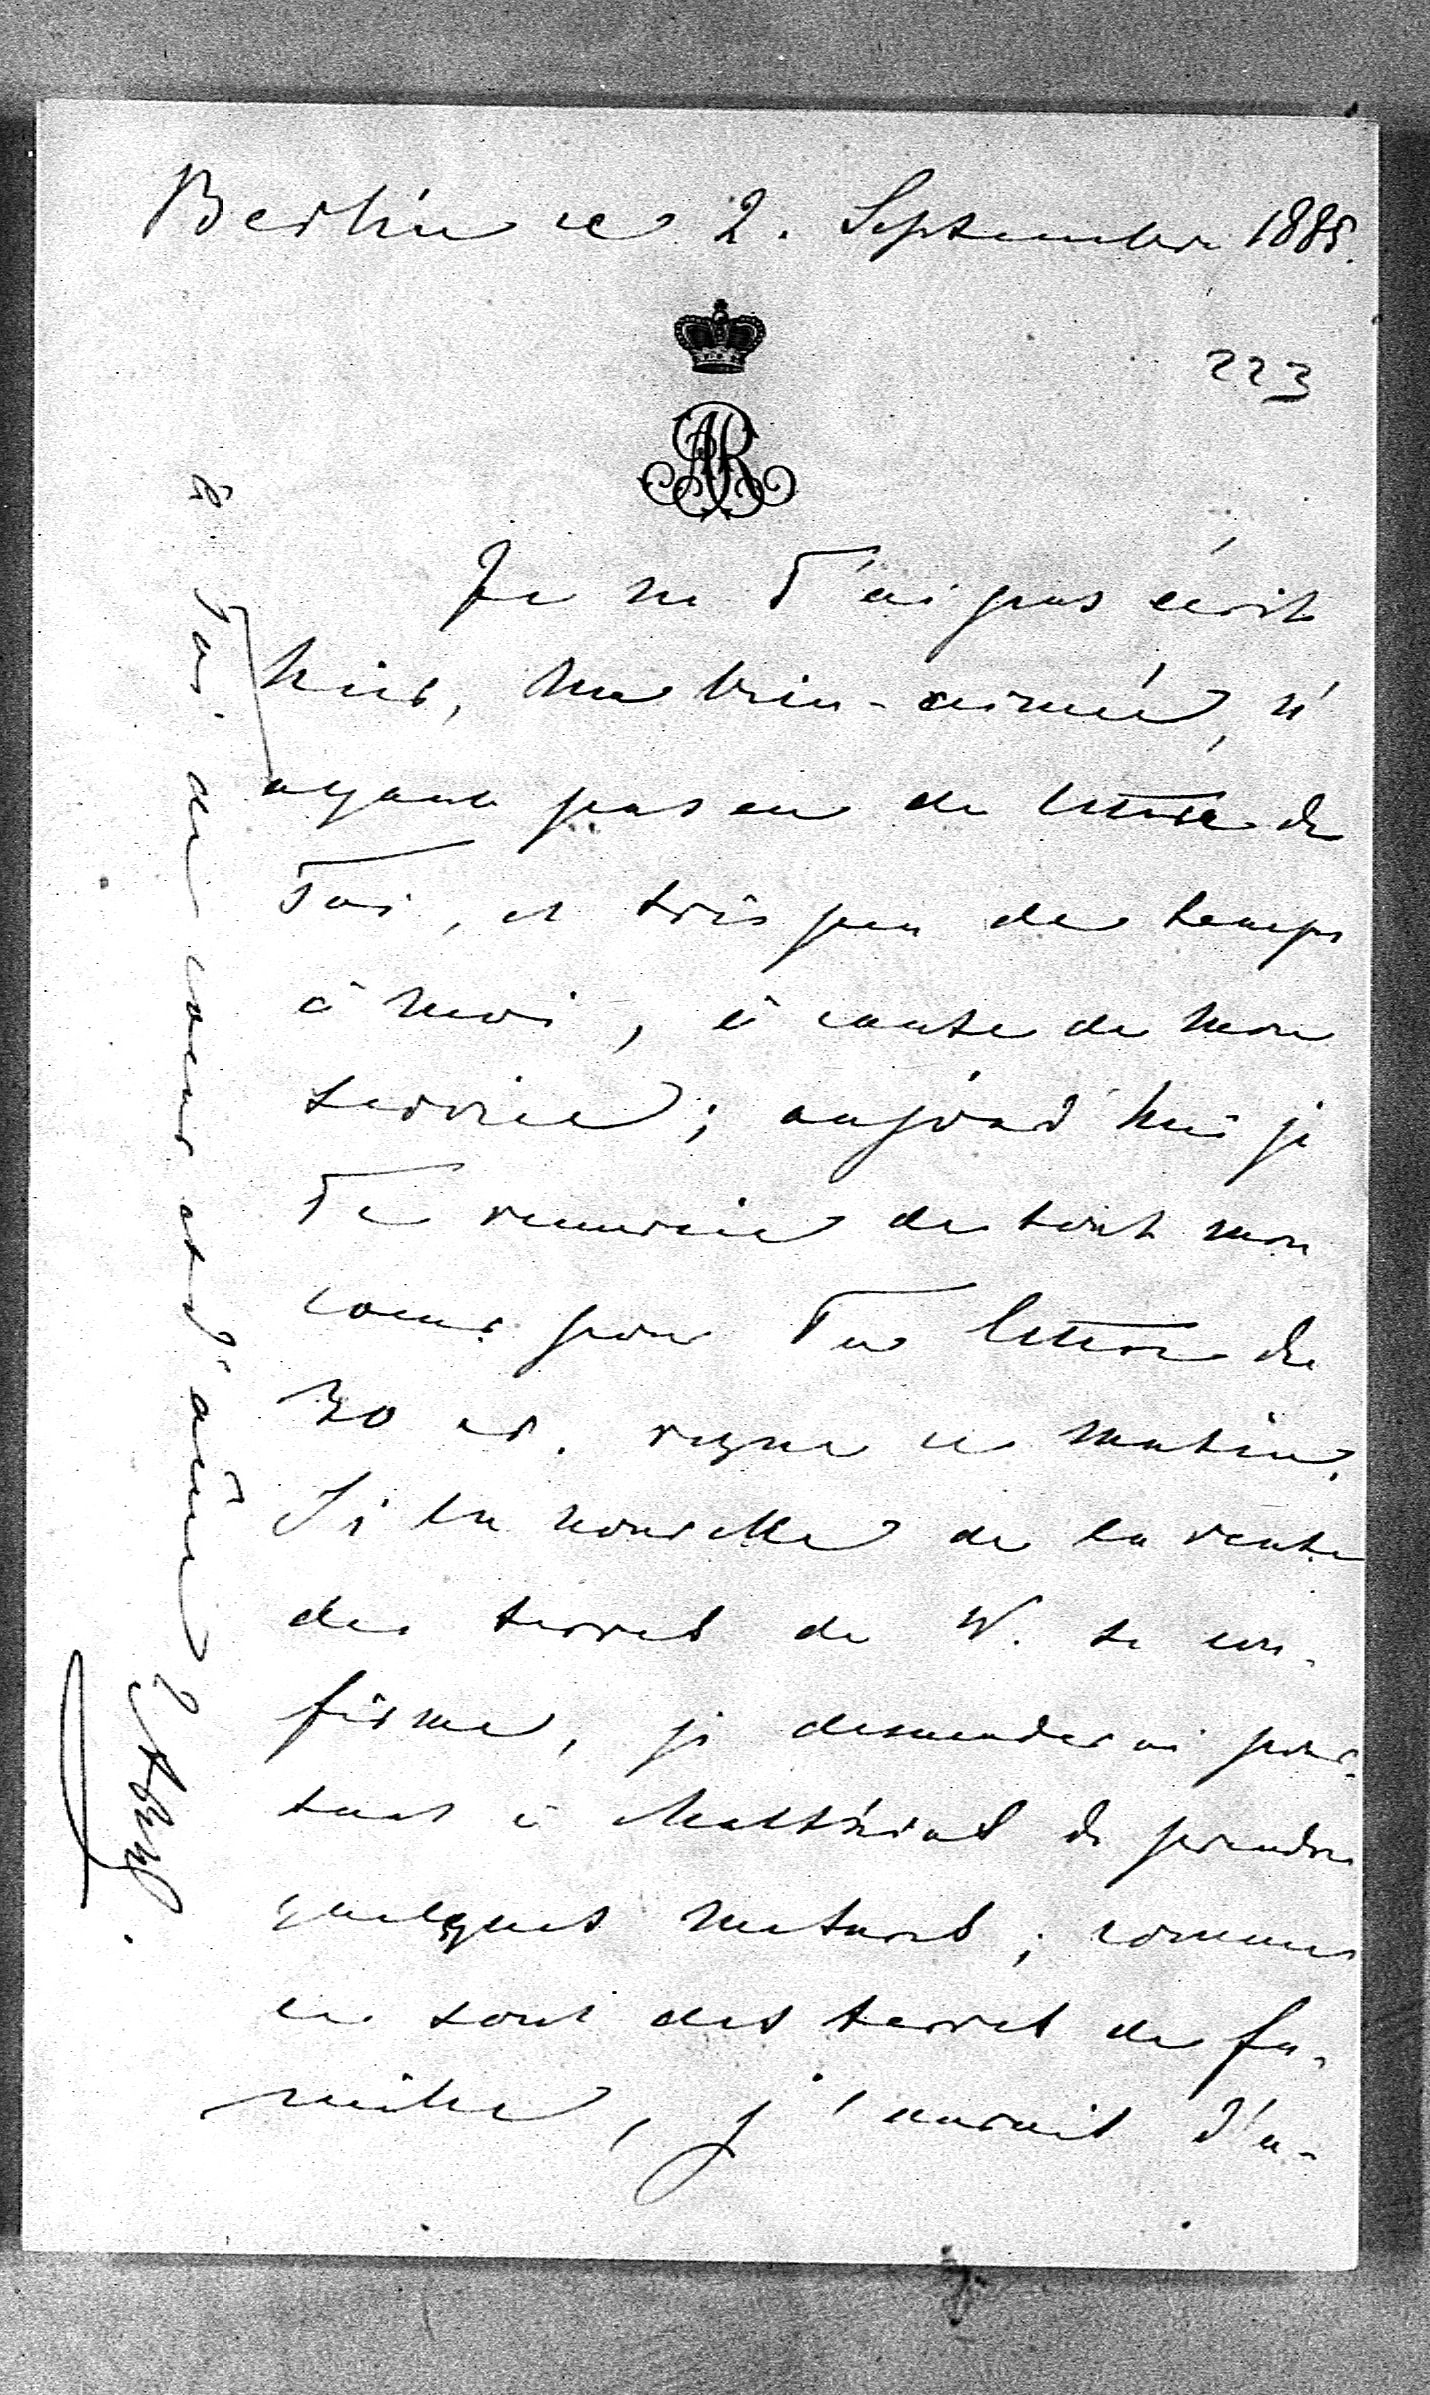 Berlin ce 2. Septembre 1885.
223
AR
Je ne T'ai pas écrit
hier, ma bien-aimée, n'
ayant pas eu de lettre de
Toi, et très peu de temps
à moi, à cause de mon
service; aujourd'hui je
Te remercie de tout mon
coeur pour Ta lettre du
30 reçue ce matin.
Si la nouvelle de la vente
des terres de W. se con-
firme, je demanderai pour-
tant à de prendre
quelques mesures; comme
ce sont des terres de fa-
mille, j'aurais d'a-
à Toi de coeur et d'âme